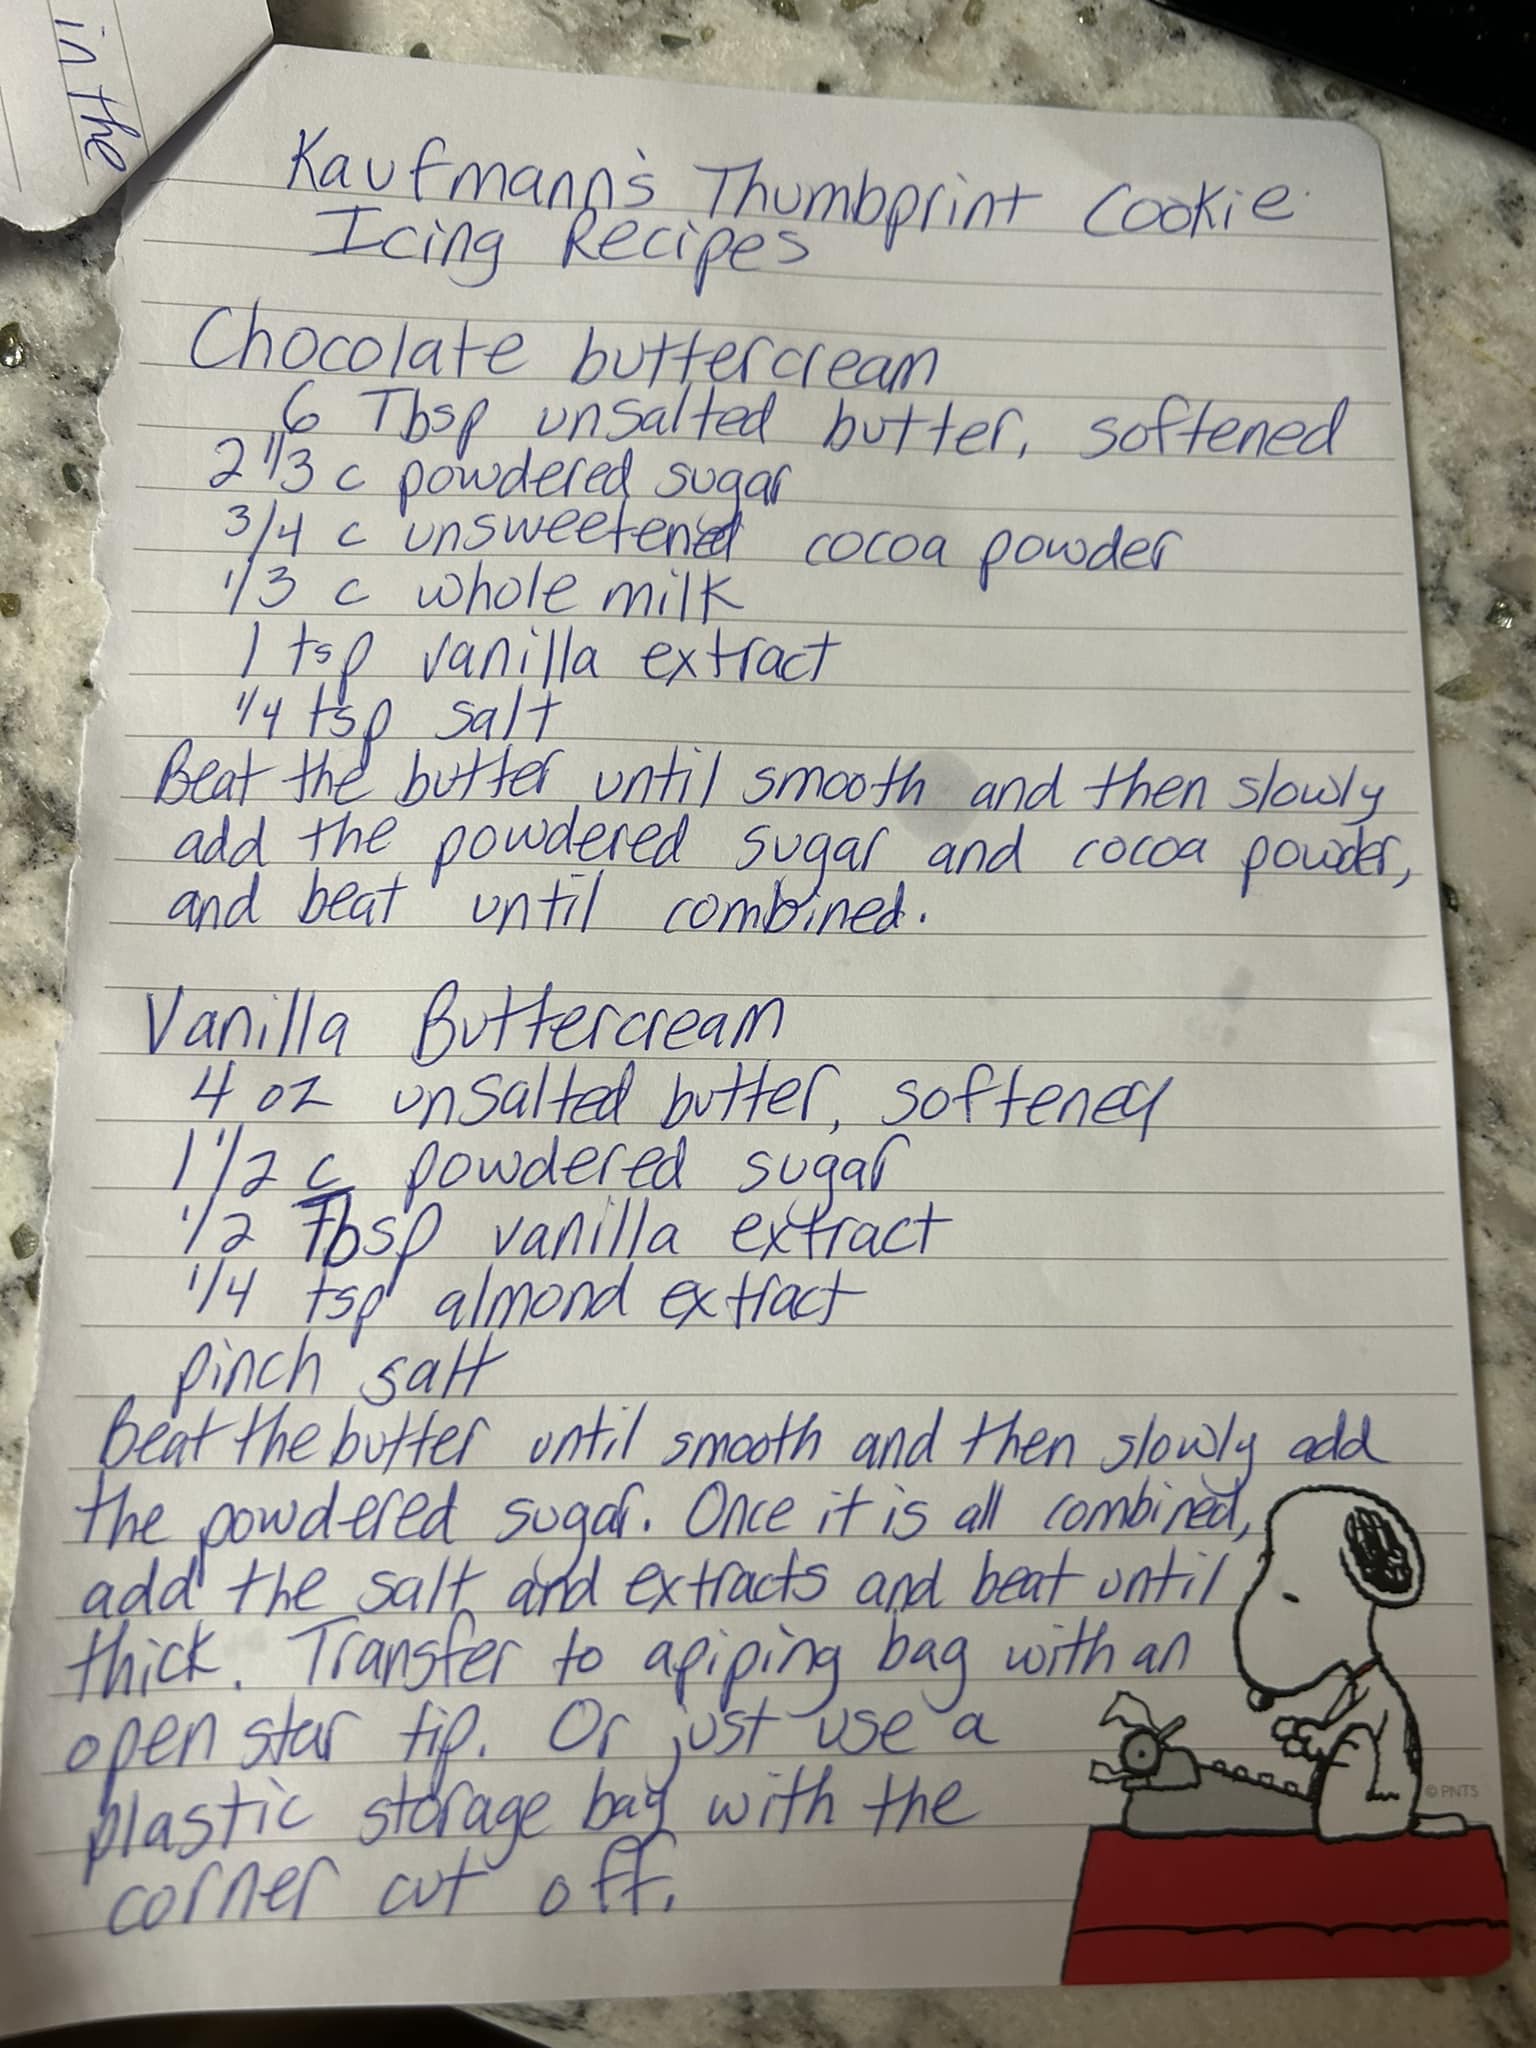 in the
Kaufmann's Thumbprint Cookie
Icing Recipes
Chocolate buttercream
6 Tbsp unsalted butter, softened
2 1/3 c powdered sugar
3/4 c unsweetened cocoa powder
1/3 c whole milk
1 tsp vanilla extract
1/4 tsp salt
Beat the butter until smooth and then slowly
add the powdered sugar and cocoa powder,
and beat until combined.
Vanilla Buttercream
4 oz unsalted butter, softened
1 1/2 c powdered sugar
1/2 Tbsp vanilla extract
1/4 tsp almond extract
pinch salt
Beat the butter until smooth and then slowly add
the powdered sugar. Once it is all combined,
add the salt and extracts and beat until
thick. Transfer to a piping bag with an
open star tip. Or just use a
plastic storage bag with the
corner cut off.
© PNTS